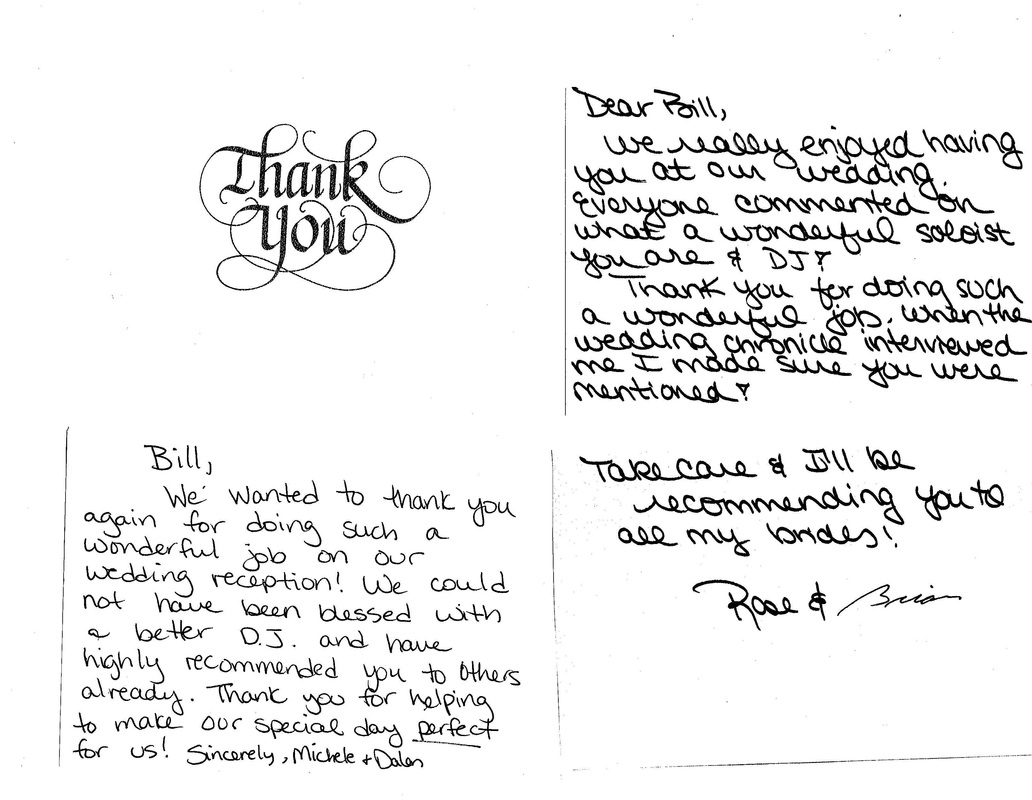 Thank
You
Dear Bill,
We really enjoyed having
you at our wedding.
Everyone commented on
what a wonderful soloist
you are & DJ!
Thank you for doing such
a wonderful job. When the
wedding chronicle interviewed
me I made sure you were
mentioned!
Take care & I'll be
recommending you to
all my brides!
Rose & Brian
Bill,
We wanted to thank you
again for doing such a
wonderful job on our
wedding reception! We could
not have been blessed with
a better D.J. and have
highly recommended you to others
already. Thank you for helping
to make our special day perfect
for us! Sincerely, Michele + Dalen